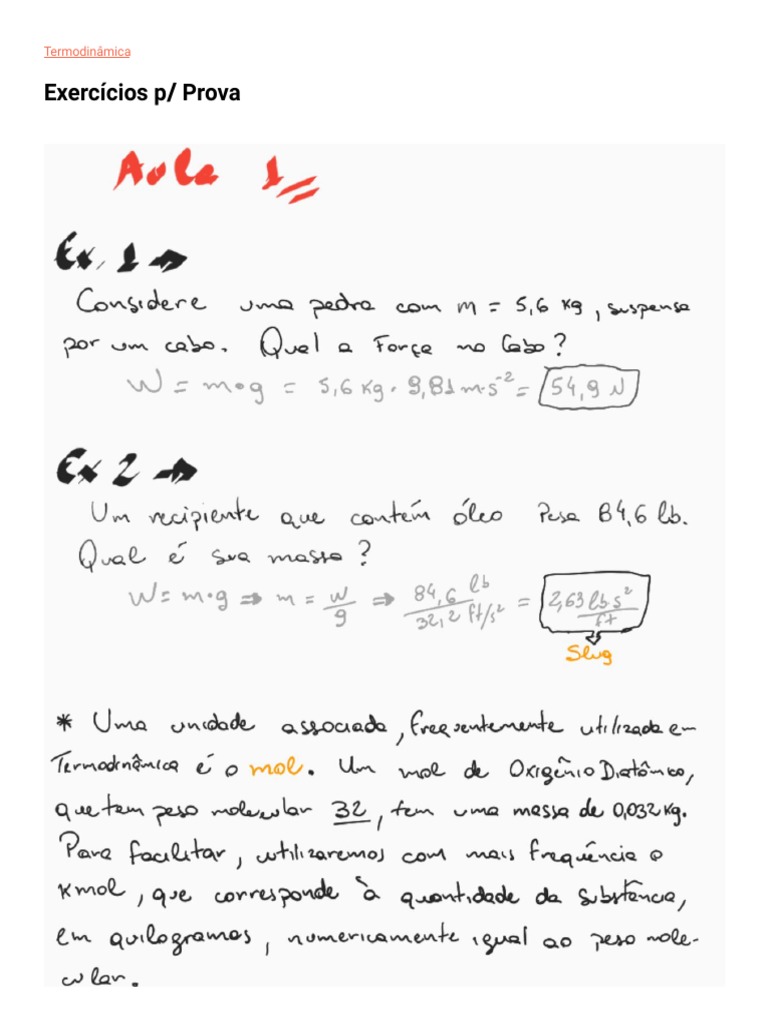 Termodinâmica
Exercícios p/ Prova
Aula 1
Ex. 1 →
Considere uma pedra com m = 5,6 kg, suspensa
por um cabo. Qual a Força no Cabo?
W = m•g = 5,6 kg • 9,81 m•s⁻² = 54,9 N
Ex 2 →
Um recipiente que contém óleo Pesa 84,6 lb.
Qual é sua massa?
W = m•g ⇒ m = W/g ⇒ 84,6 lb / 32,2 ft/s² = 2,63 lb•s²/ft
Slug
* Uma unidade associada, frequentemente utilizada em
Termodinâmica é o mol. Um mol de Oxigênio Diatômico,
que tem peso molecular 32, tem uma massa de 0,032 kg.
Para facilitar, utilizaremos com mais frequência o
Kmol, que corresponde à quantidade da substância,
em quilogramas, numericamente igual ao peso mole-
cular.